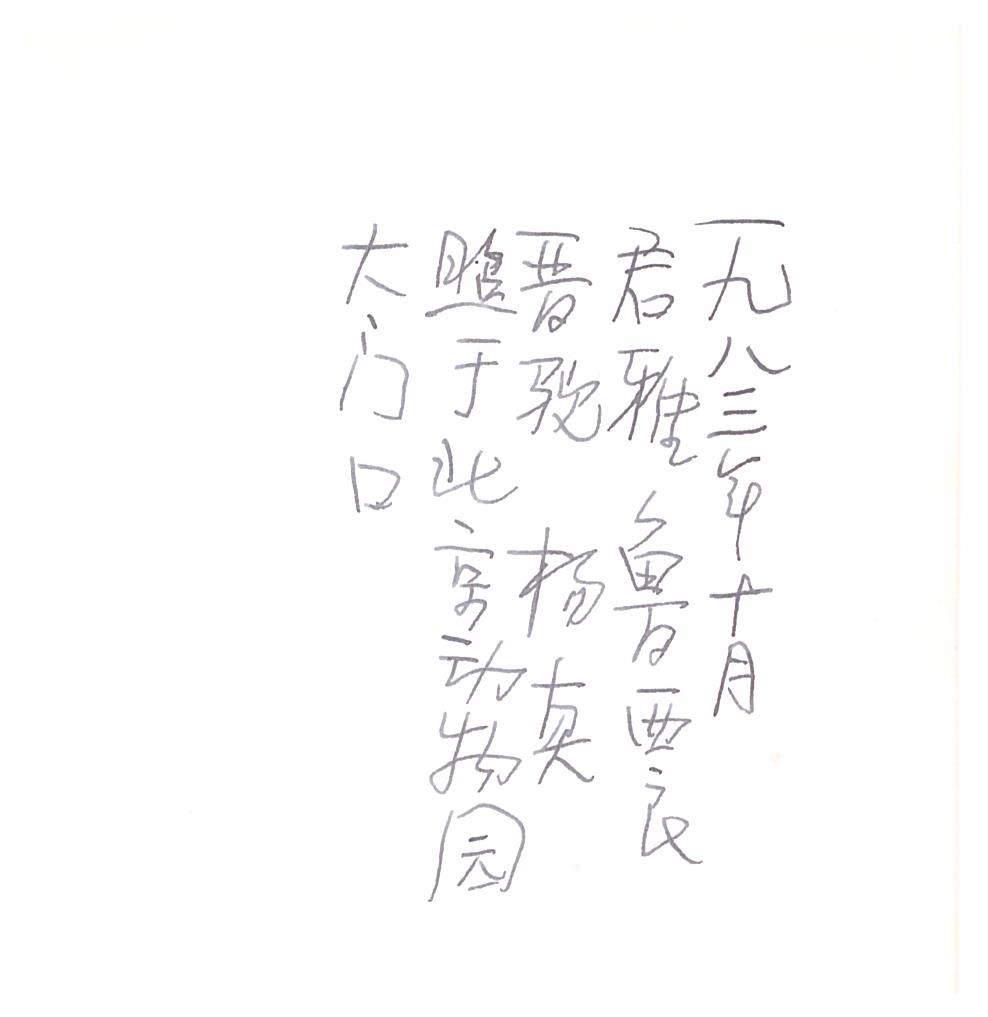 一九八三年十月
君雅 鲁西良
晋 杨真
照于北京动物园
大门口